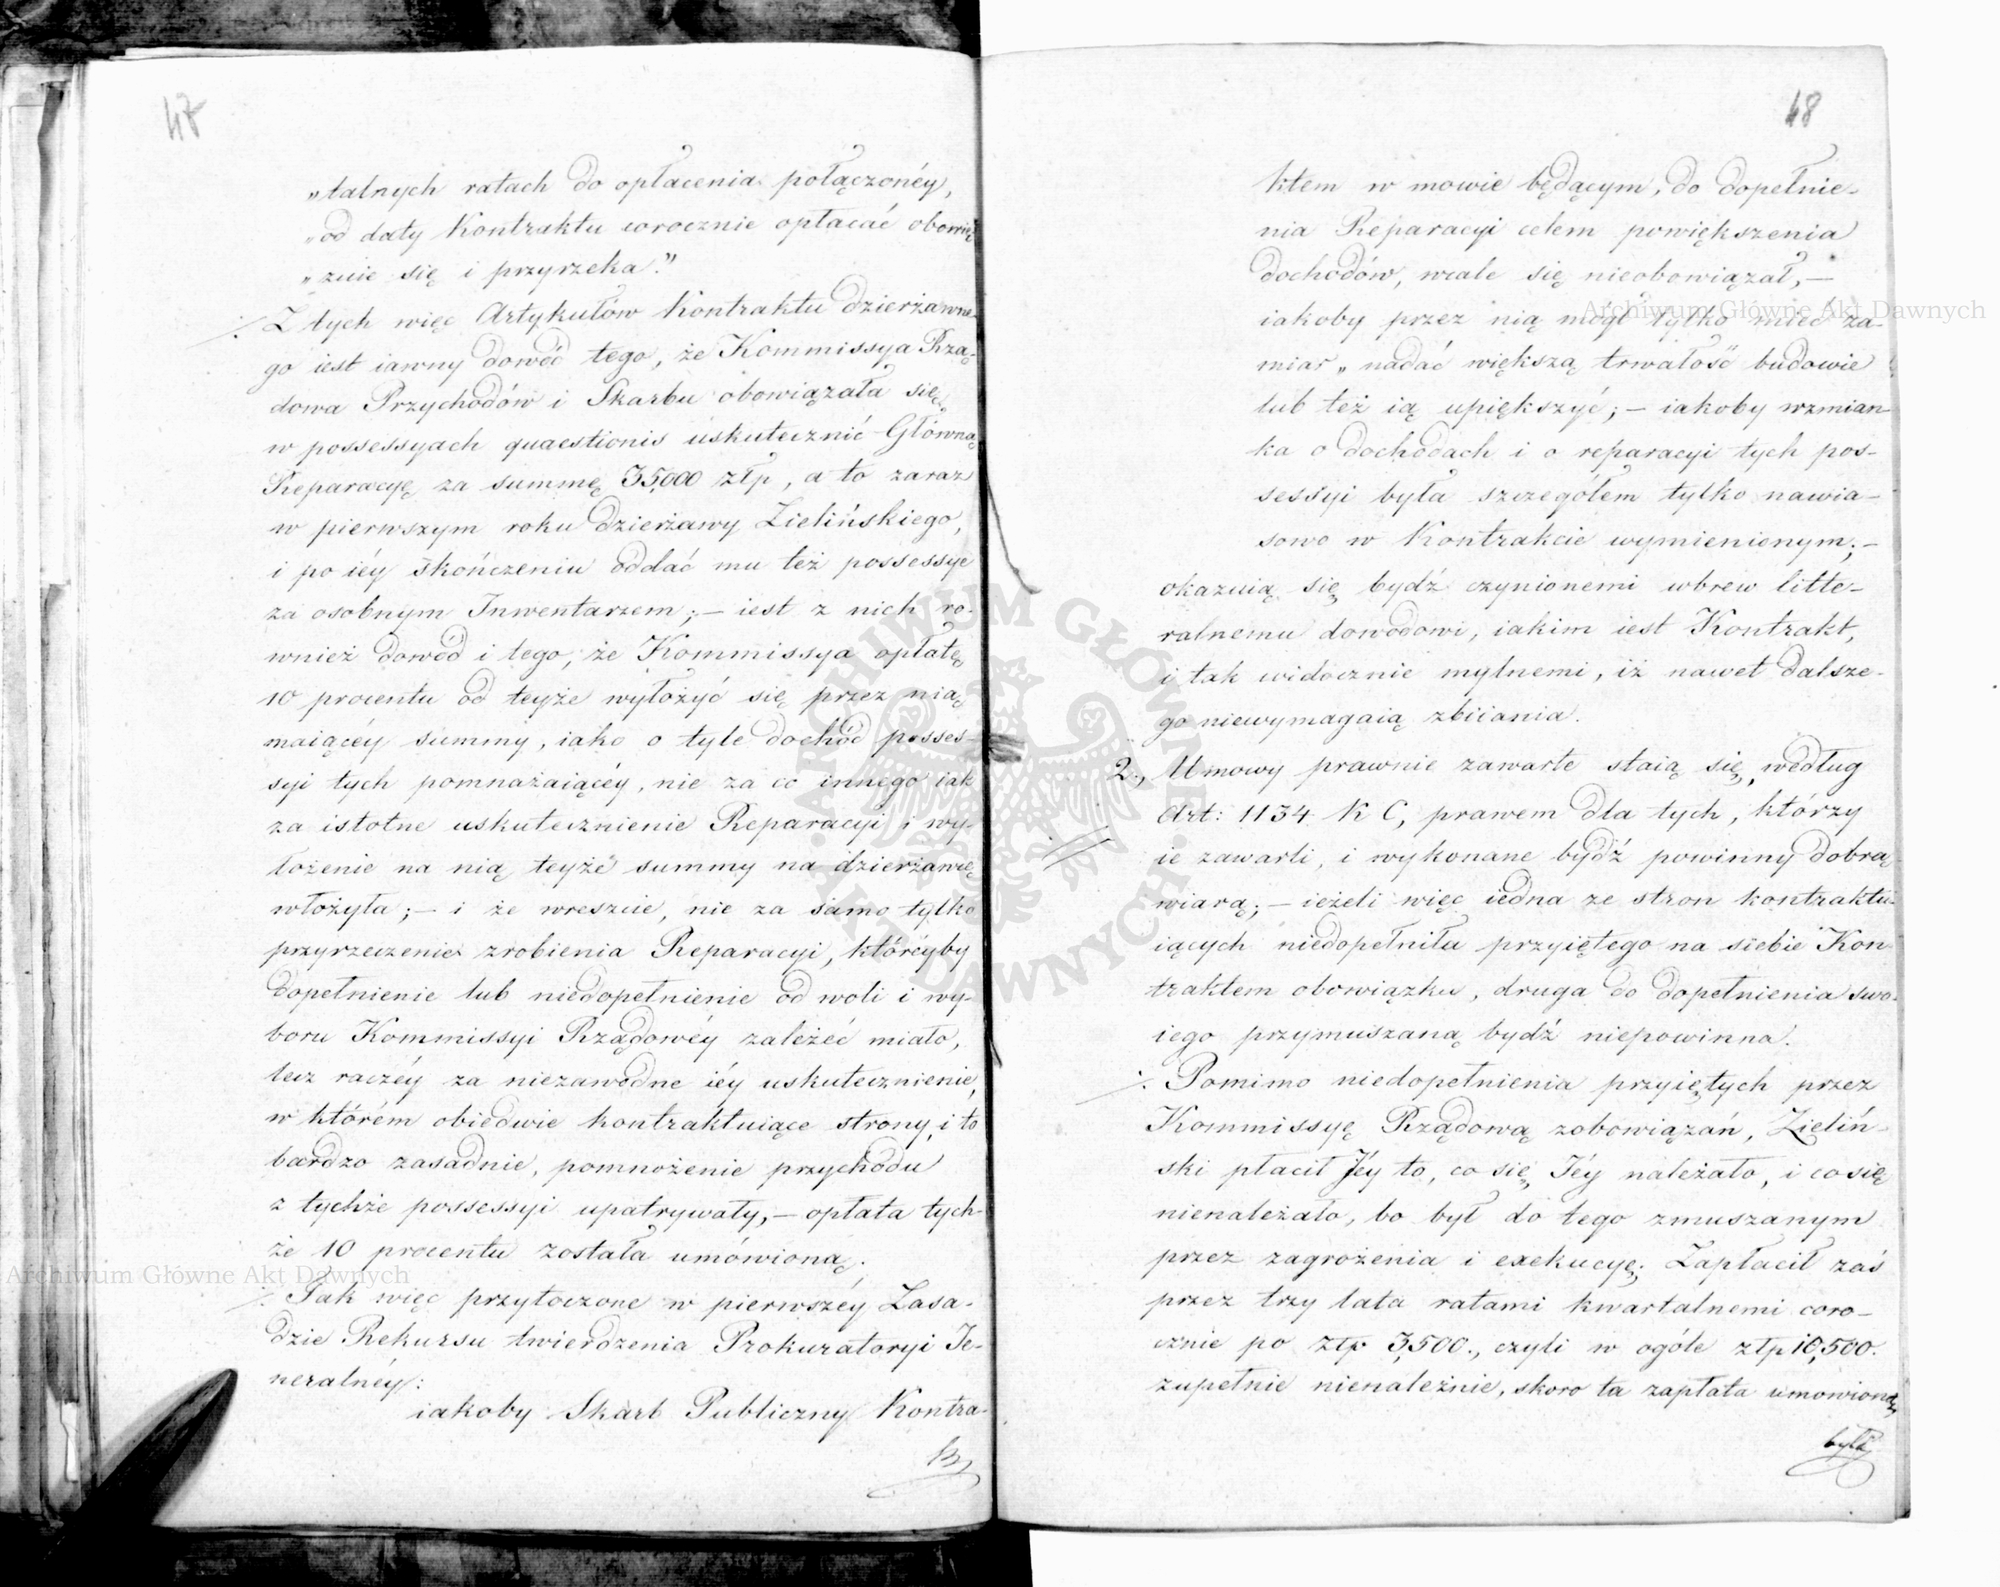 47
„talnych ratach do opłacenia połączonéy,
„od daty Kontraktu corocznie opłacać obowią
„zuie się i przyrzeka."
Z tych więc Artykułów Kontraktu dzierżawne-
go iest iawny dowód tego, że Kommissya Rzą-
dowa Przychodów i Skarbu obowiązała się
w possessyach quaestionis uskutecznić Główną
Reparacyę za summę 35,000 złp, a to zaraz
w pierwszym roku Dzierżawy Zielińskiego,
i po iéy skończeniu oddać mu też possessye
za osobnym Inwentarzem; – iest z nich ro-
wnież dowód i tego, że Kommissya opłatę
10 procentu od teyże wyłożyć się przez nią
maiącéy summy, iako o tyle dochód posses-
syi tych pomnażaiącéy, nie za co innego iak
za istotne uskutecznienie Reparacyi i wy-
łożenie na nią teyże summy na dzierżawcę
włożyła; – i że wreszcie, nie za samo tylko
przyrzeczenie zrobienia Reparacyi, któréyby
dopełnienie lub niedopełnienie od woli i wy-
boru Kommissyi Rządowéy zależéć miało,
lecz raczéy za niezawodne iéy uskutecznienie,
w którém obiedwie kontraktuiące strony, i to
bardzo zasadnie, pomnożenie przychodu
z tychże possessyi upatrywały, – opłata tych-
że 10 procentu została umówioną.
Tak więc przytoczone w pierwszéy Zasa-
dzie Rekursu twierdzenia Prokuratoryi Je-
neralnéy:
iakoby Skarb Publiczny Kontra-
48
ktem w mowie będącym, do dopełnie-
nia Reparacyi celem powiększenia
dochodów, wcale się nieobowiązał, –
iakoby przez nią mógł tylko mieć za-
miar „nadać większą trwałość budowie
lub też ią upiększyć; – iakoby wzmian-
ka o dochodach i o reparacyi tych pos-
sessyi była szczegółem tylko nawia-
sowo w Kontrakcie wymienionym; –
okazuią się bydź czynionemi wbrew litte-
ralnemu dowodowi, iakim iest Kontrakt,
i tak widocznie mylnemi, iż nawet dalsze-
go niewymagaią zbiiania.
2., Umowy prawnie zawarte staią się, według
Art: 1134 K C, prawem dla tych, którzy
ie zawarli, i wykonane bydź powinny dobrą
wiarą; – ieżeli więc iedna ze stron kontraktu-
iących niedopełniła przyiętego na siebie Kon-
traktem obowiązku, druga do dopełnienia swo-
iego przymuszaną bydź niepowinna.
Pomimo niedopełnienia przyiętych przez
Kommissyę Rządową zobowiązań, Zieliń-
ski płacił Jéy to, co się Jéy należało, i co się
nienależało, bo był do tego zmuszanym
przez zagrożenia i exekucyę. Zapłacił zaś
przez trzy lata ratami kwartalnemi coro-
cznie po złp 3,500., czyli w ogóle złp 10,500.
zupełnie nienależnie, skoro ta zapłata umowioną
była
Archiwum Główne Akt Dawnych
Archiwum Główne Akt Dawnych
ARCHIWUM GŁÓWNE AKT DAWNYCH